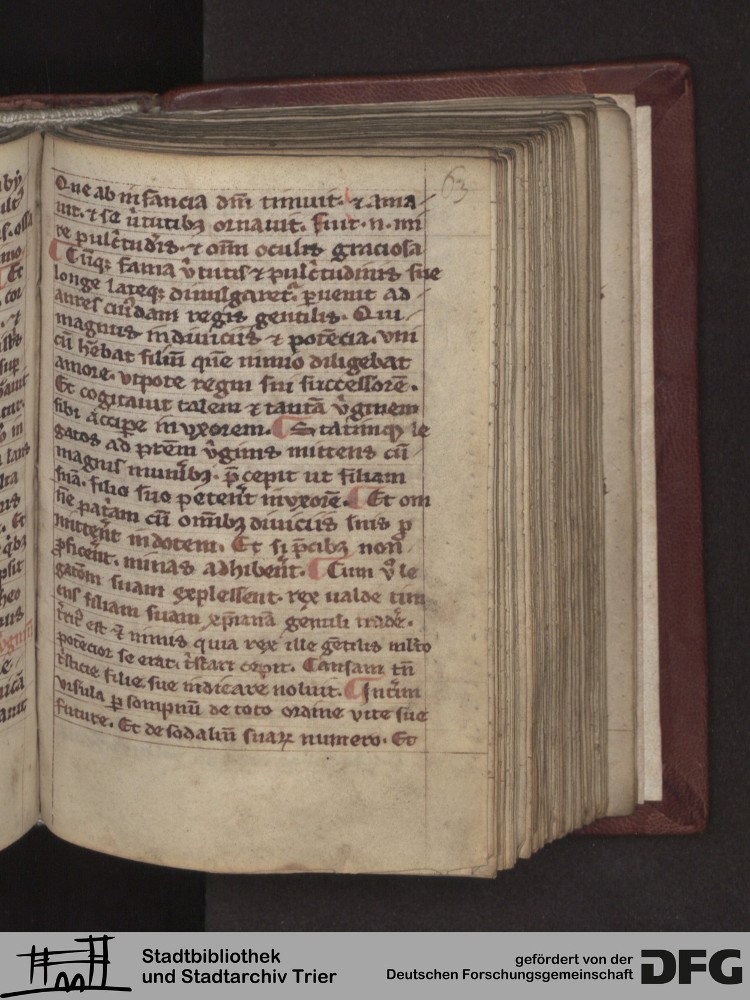 63
Que ab infancia dm̄ timuit. ⁊ ama
uit. ⁊ se v̓tutibꝫ ornauit. Fuit. n. mi
re pulc̓tudīs. ⁊ om̄i oculis graciosa
Cūqꝫ fama v̓tutis ⁊ pulc̓tudinis sue
longe lateqꝫ diuulgaret. ꝑuenit ad
aures cuiᵭdam regis gentilis. Qui
magnus in diuiciis ⁊ potēcia. vni
cū hēbat filiū quē nimio diligebat
amore. vtpote regni sui successorē.
Et cogitauit talem ⁊ tantā v̓ginem
sibi accipe in vxorem. Statimqꝫ le
gatos ad pr̄em v̓ginis mittens cū
magnis munibꝫ. p̄cepit ut filiam
suā. filio suo petent̓ in vxorē. Et om
nē patam cū omībꝫ diuiciis suis ꝓ
mittent̓ in dotem. Et si p̄cibꝫ non
ꝓficent̓. minas adhibent̓. Cum v̓ le
gatōm suam explessent. rex ualde tim
ens filiam suam xp̄ianā gentili trade.
t̓rit̓ est ⁊ nimis quia rex ille gētilis mlt̓o
potēcior se erat. t̓stari cepit. Causam tn̄
t̓sticie filie sue indicare noluit. Int̓im
vrsula ꝑ sompnū de toto ordine vite sue
future. Et de sodaliū suaꝝ numero. Et
Stadtbibliothek
und Stadtarchiv Trier
gefördert von der
Deutschen Forschungsgemeinschaft
DFG